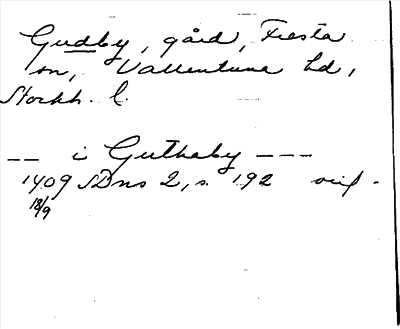 Gudby, gård, Fresta
sn, Vallentuna hd,
Stockh. l.
-- i Gutheby ---
1409 SDns 2, s. 192 orig.
18/9